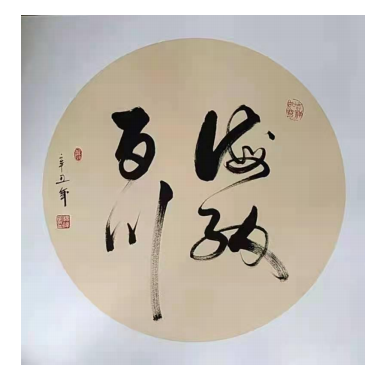 海纳
百川
辛丑年